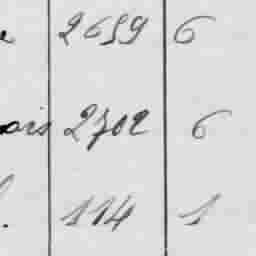 2659 6
ois 2702 6
114 1